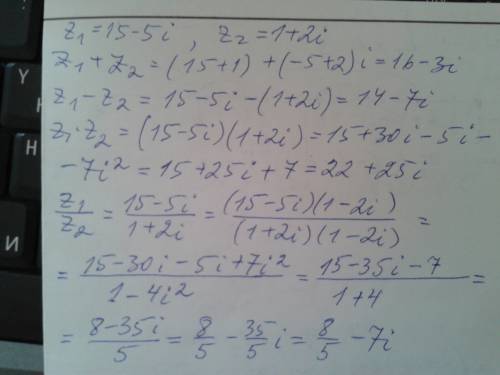 z₁=15-5i , z₂=1+2i
z₁+z₂=(15+1)+(-5+2)i=16-3i
z₁-z₂=15-5i-(1+2i)=14-7i
z₁·z₂=(15-5i)(1+2i)=15+30i-5i-
-7i²=15+25i+7=22+25i
z₁/z₂=(15-5i)/(1+2i)=((15-5i)(1-2i))/((1+2i)(1-2i))=
=(15-30i-5i+7i²)/(1-4i²)=(15-35i-7)/(1+4)=
=(8-35i)/5=8/5-35/5 i=8/5-7i
Y
Н
И